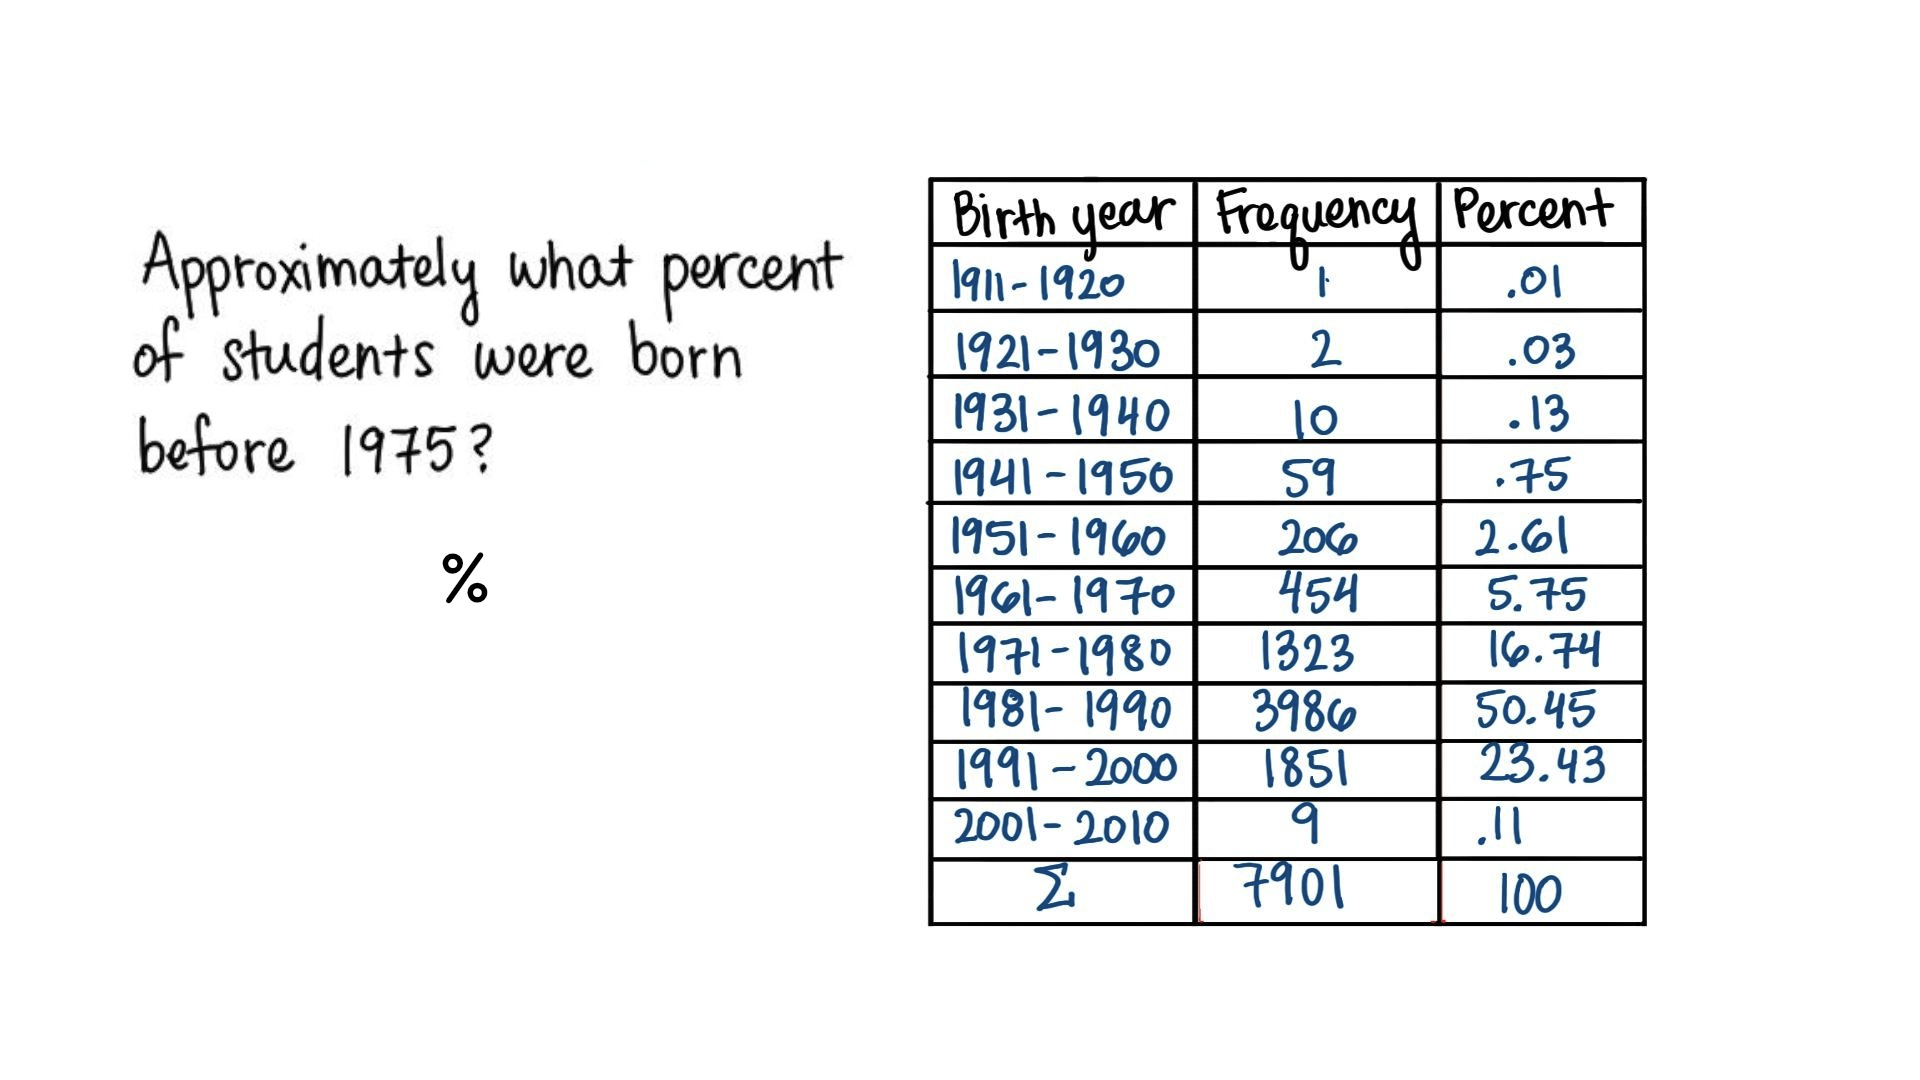 Approximately what percent
of students were born
before 1975?
%
Birth year Frequency Percent
1911-1920 1 .01
1921-1930 2 .03
1931-1940 10 .13
1941-1950 59 .75
1951-1960 206 2.61
1961-1970 454 5.75
1971-1980 1323 16.74
1981-1990 3986 50.45
1991-2000 1851 23.43
2001-2010 9 .11
Σ 7901 100